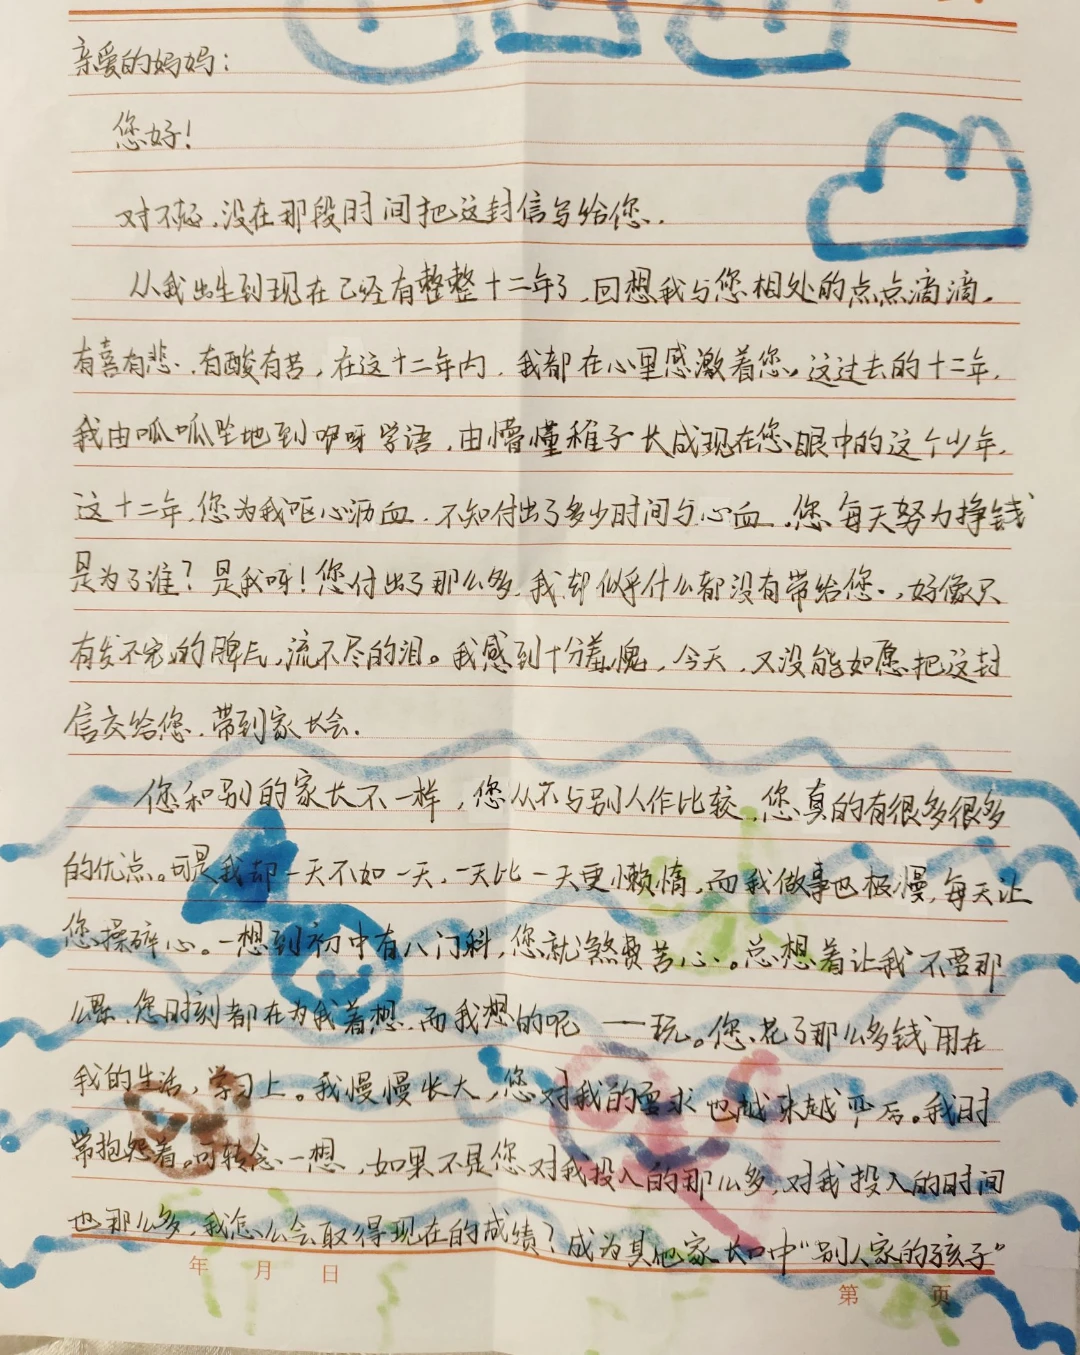 亲爱的妈妈：
您好！
对不起，没在那段时间把这封信写给您．
从我出生到现在已经有整整十二年了，回想我与您相处的点点滴滴，
有喜有悲，有酸有苦，在这十二年内，我都在心里感激着您。这过去的十二年，
我由呱呱坠地到咿呀学语，由懵懂稚子长成现在您眼中的这个少年，
这十二年，您为我呕心沥血，不知付出了多少时间与心血，您每天努力挣钱
是为了谁？是我呀！您付出了那么多，我却似乎什么都没有带给您，好像只
有发不完的脾气，流不尽的泪。我感到十分羞愧，今天，又没能如愿把这封
信交给您，带到家长会．
您和别的家长不一样，您从不与别人作比较，您真的有很多很多
的优点。可是我却一天不如一天，一天比一天更懒惰，而我做事也极慢，每天让
您操碎心。一想到初中有八门科，您就煞费苦心。总想着让我不要那
么累，您时刻都在为我着想，而我想的呢——玩。您花了那么多钱用在
我的生活，学习上。我慢慢长大，您对我的要求也越来越严厉。我时
常抱怨着。可转念一想，如果不是您对我投入的那么多，对我投入的时间
也那么多，我怎么会取得现在的成绩？成为其他家长口中“别人家的孩子”
年 月 日
第 页